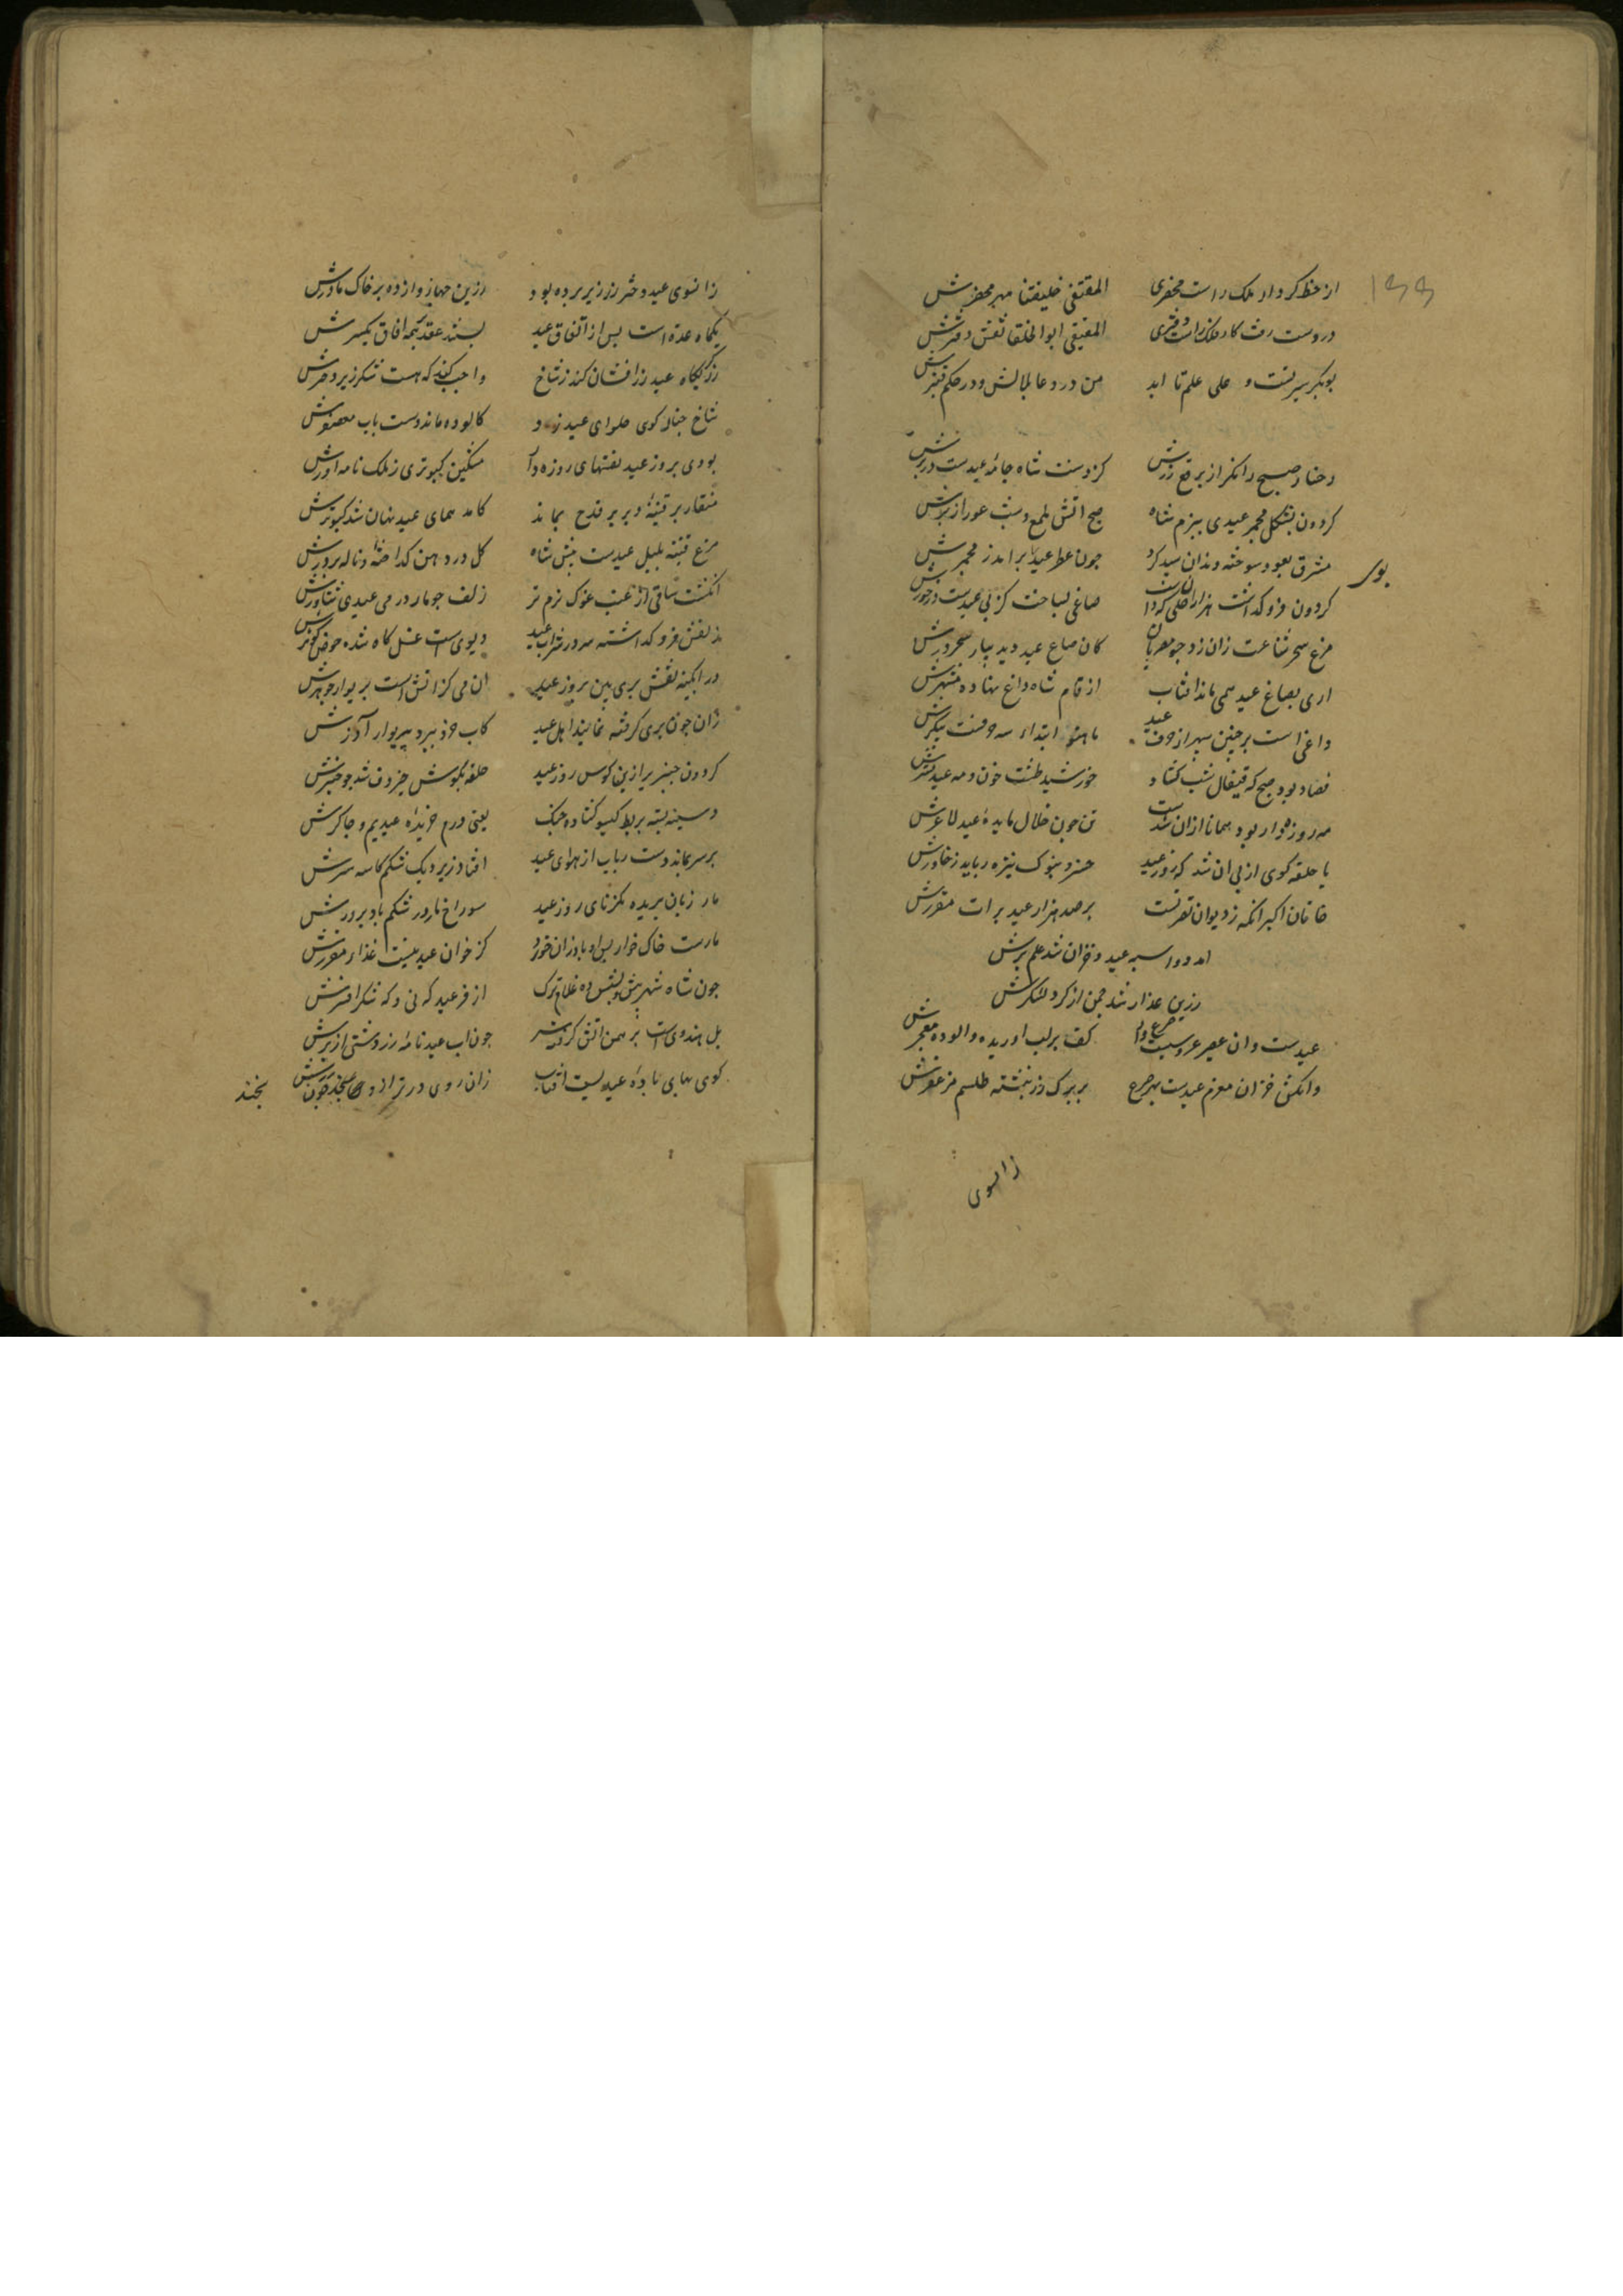 از خط کردکار ملک راست محضری المقتفی خلیفتنا مهر محضرش
در دست رف کار فلک راست دفتری المقتفی ابوالخلفا نقش دفترش
بوبکر سیرتست و علی علم تا ابد من در دعا بلالش و در حکم قنبرش
رخسار صبح را نکر از برقع زرش کز دست شاه جامه عیدست در برش
کردون بشکل مجمر عیدی ببزم شاه صبح آتش ملمع و شب عود ازبرش
مشرق بعود سوخته دندان سپید کرد چون عطر عید برامد ز مجمرش
بوی
کردون فرو کذاشت هزاران حلی که داشت صاعی بساخت کز پی عیدست درخورش
مرغ سحر شناعت ازان زد چو مصریان کان صاع عید دید ببار سحر درش
اری بصاع عید همی ماند افتاب از نام شاه داغ نهاده مشهرش
داغی است بر جبین سپهر از سه حرف عید ماه نو ابتداء سه حرفست پیکرش
فصاد بود صبح که قیفال شب کشاد خورشید طشت خون و مه عید نشترش
مه روزه دار بود همانا ازان شدست تن چون خلال مایده عید لاغرش
یا حلقه کوی از پی ان شد که روز عید خسرو بنوک نیزه رباید ز خاورش
خاقان اکبر انکه ز دیوان نصرتست بر صد هزار عید برات مقررش
امد دواسبه عید و خزان شد علم برش
زرین عذار شد چمن از کرد لشکرش
عیدست وان عصیر عروسیست صرع دار کف بر لب اوریده و الوده معجرش
وانکش خزان معزم عیدست بهر صرع بر برک رز نبشته طلسم مزعفرش
زانسوی
زانسوی عید دختر رز زیر پرده بود زرین جهاز وازده بر خاک مادرش
یکماه عده داشت پس از اتفاق عید بستند عقد بر همه افاق یکسرش
رز کیکاه عید زر افشان کند ز شاخ واجب کند که هست شکرریز دخترش
شاخ چنار کوی حلوای عید زد کالوده ماند دست باب معصفرش
بودی بروز عید نفسهای روزه دار مسکین کبوتری ز فلک نامه اورش
منقار بر قنینه و پر بر قدح بماند کامد همای عید نهان شد کبوترش
مرغ قنینه بلبل عیدست پیش شاه کل در دهن کداخته و ناله پرورش
انکشت ساقی از غبب غوک نرم تر زلف چو مار در می عیدی شناورش
زلفش فرو کذاشته سر در شراب عید دیوی است غسل کاه شده حوض کوثرش
در ابکینه نقش پری بین بروز عید ان می کز اتش است پریوار جوهرش
زان چون پری کرفته نمایند اهل عید کاب خرد ببرد پریوار آذرش
کردون چنبری از پی کوس روز عید حلقه بکوش چنبر دف شد چو چنبرش
دسته بسته بربط کیسو کشاده چنک یعنی درم خریده عیدیم و چاکرش
بر سر بماند دست رباب از هوای عید افتاد زیر دیک شکم کاسه سرش
مار زبان بریده نکر نای روز عید سوراخ مار در شکم باد پرورش
مارست خاک خوار پس او باد ازان خورد کز خوان عید نیست غذاء مقررش
چون شاه شهری پیش و پس ده غلام ترک از فر عید که نی و که شکر افسرش
بل هندوی است برهمن اتش کرفته سر چون اب عید نامه زردشتی از برش
کوی بهای باده عیدیست افتاب زان روی در ترازوی
بخند